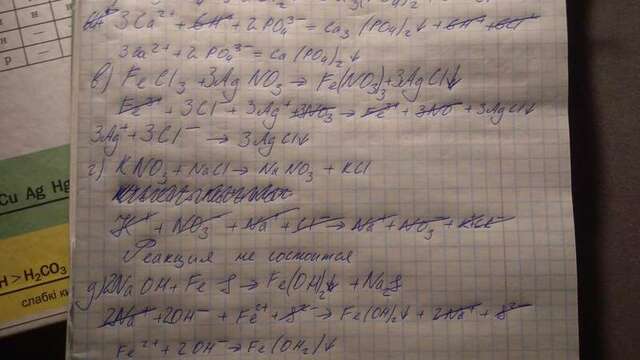 3Ca²⁺ + 6H⁺ + 2PO₄³⁻ = Ca₃(PO₄)₂↓ + 6H⁺ + 6Cl⁻
3Ca²⁺ + 2PO₄³⁻ = Ca(PO₄)₂↓
в) FeCl₃ + 3AgNO₃ → Fe(NO₃)₃ + 3AgCl↓
Fe³⁺ + 3Cl⁻ + 3Ag⁺ + 3NO₃ → Fe³⁺ + 3NO⁻ + 3AgCl↓
3Ag⁺ + 3Cl⁻ → 3AgCl↓
г) KNO₃ + NaCl → NaNO₃ + KCl
K⁺ + NO₃⁻ + Na⁺ + Cl⁻ → Na⁺ + NO₃⁻ + KCl
Реакция не состоится
д) 2NaOH + FeS → Fe(OH)₂↓ + Na₂S
2Na⁺ + 2OH⁻ + Fe²⁺ + S²⁻ → Fe(OH)₂↓ + 2Na⁺ + S²⁻
Fe²⁺ + 2OH⁻ → Fe(OH₂)↓
Cu Ag Hg
H > H₂CO₃
слабкі ки
н
н
р
–